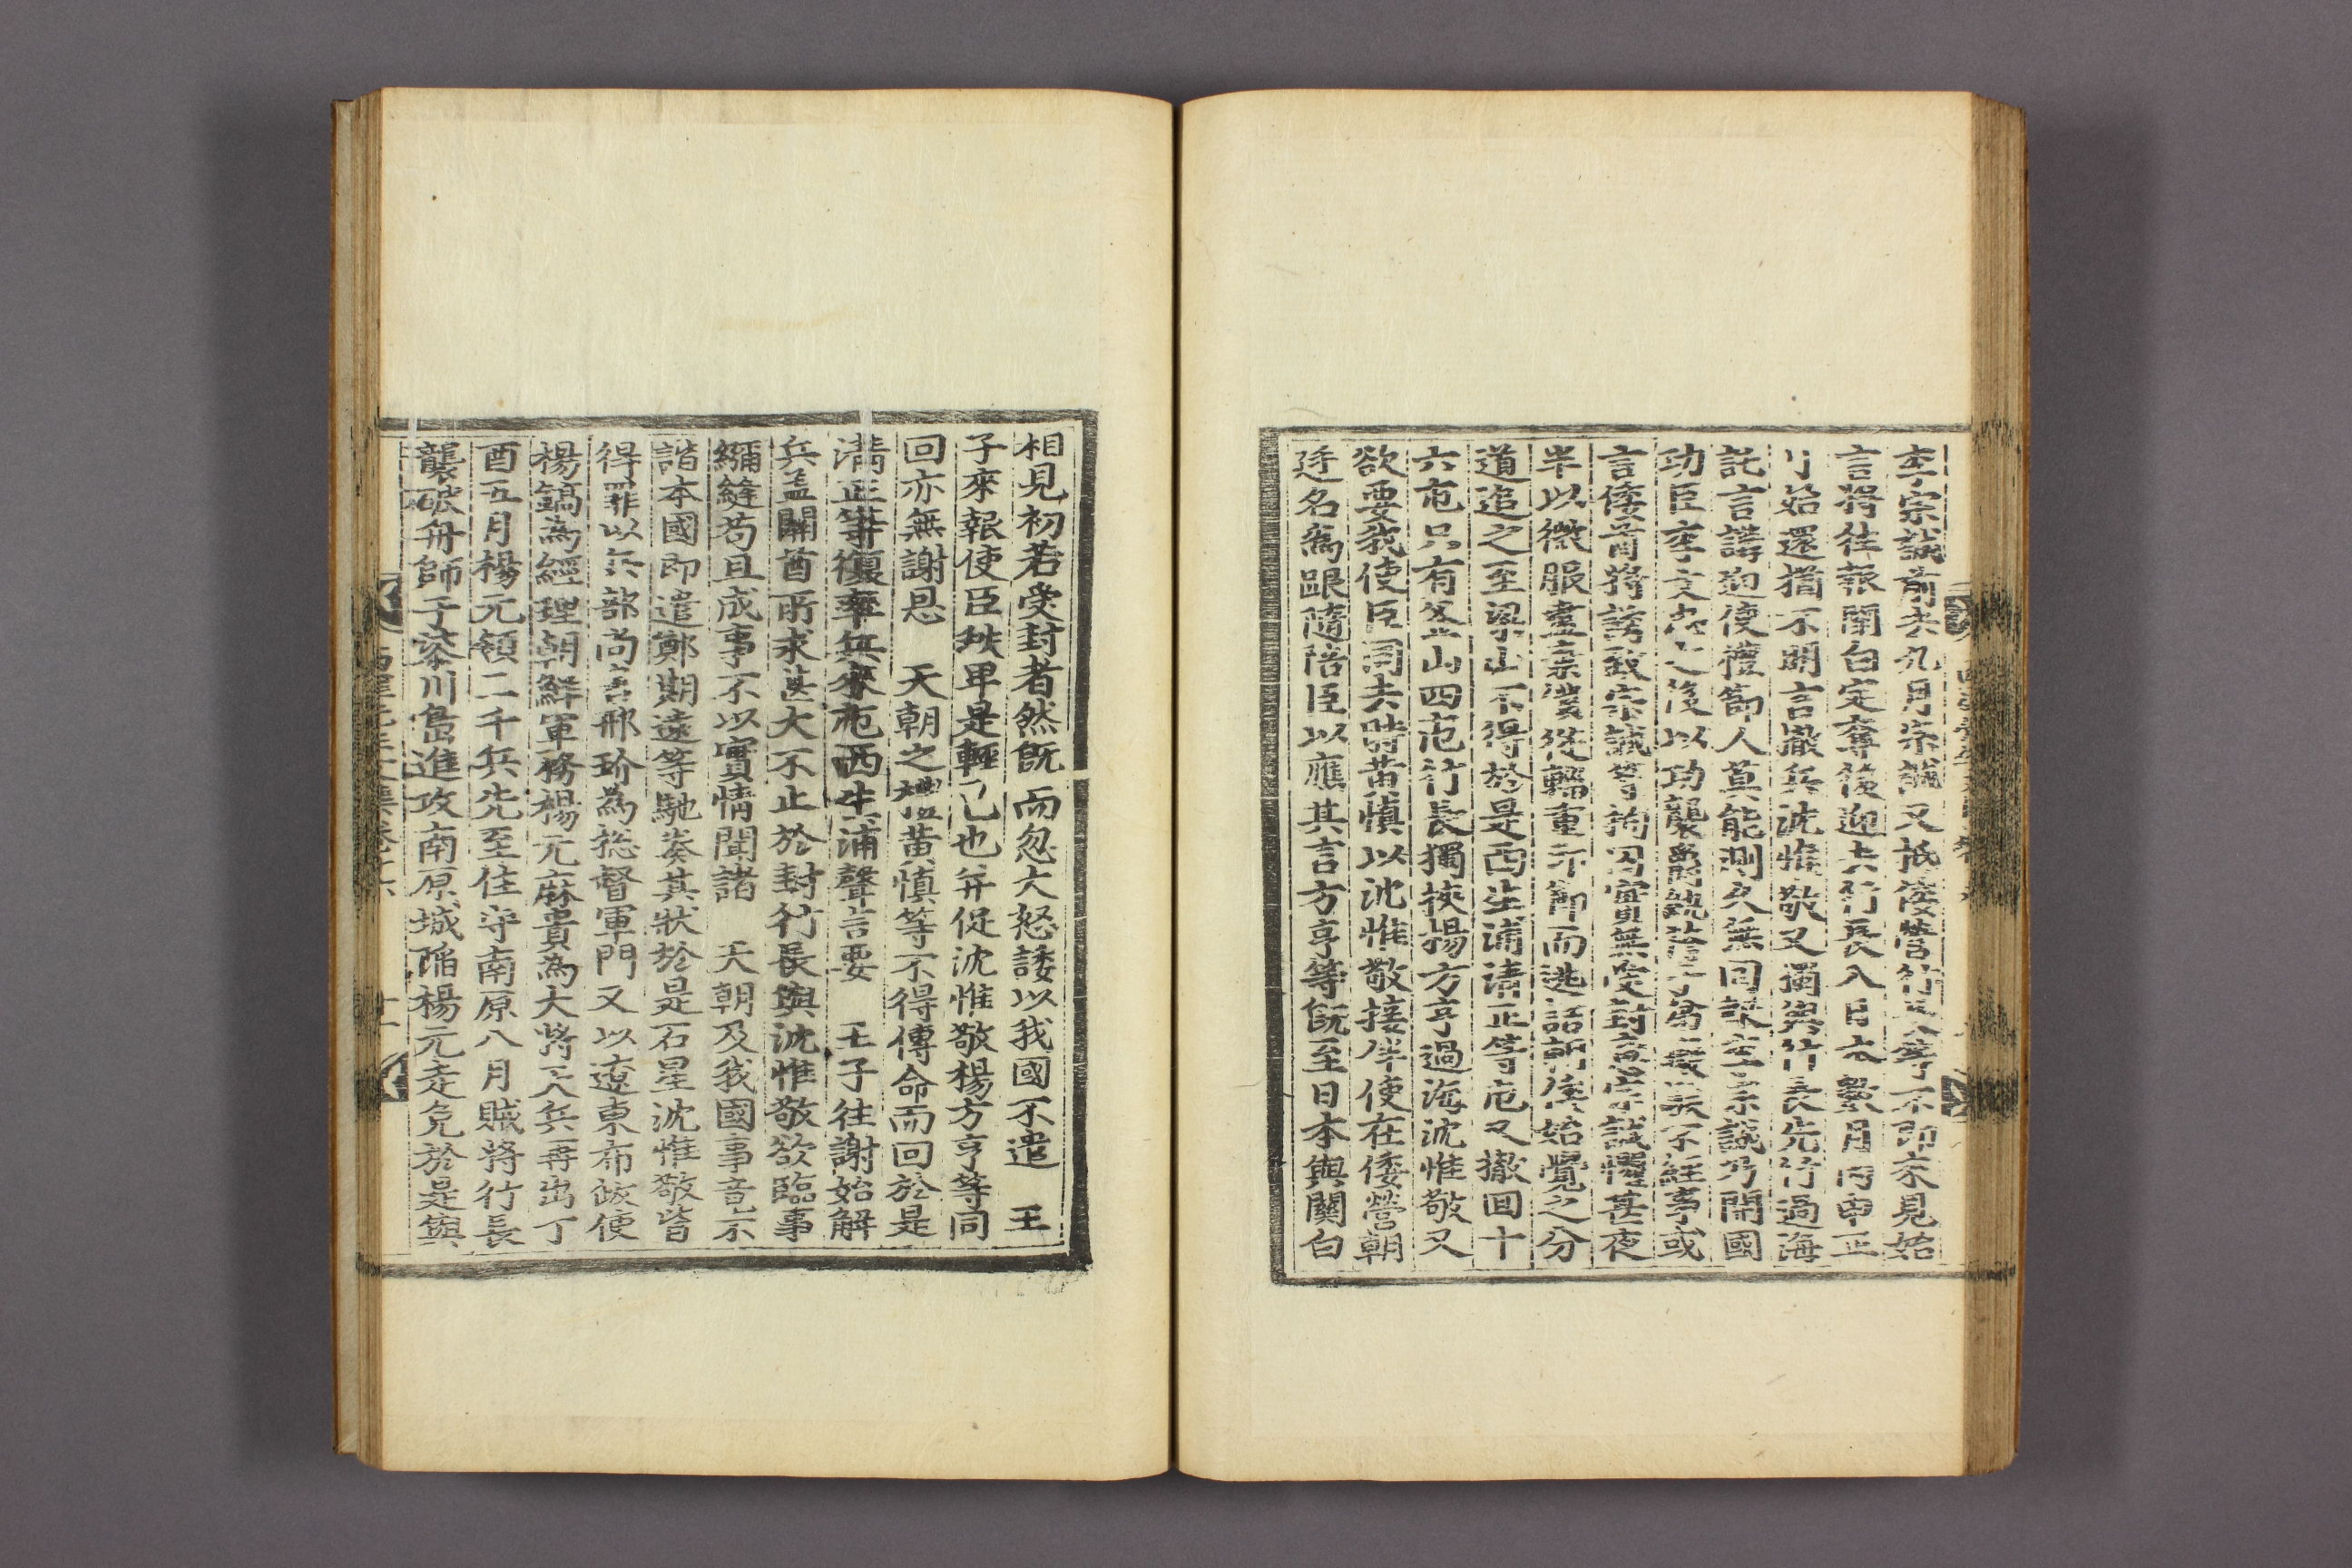 李宗誠前去九月宗誠又抵倭營行長等不卽來見始
言將往報關白定奪後迎去行長入日本數月丙申正
月始還猶不明言撤兵沈惟敬又獨與行長先行過海
託言講迎使禮節人莫能測久無回報李宗誠乃開國
功臣李文忠之後以功襲爵不經事或
言倭酋將誘致宗誠等拘囚實無受封意宗誠懼甚夜
半以微服盡棄從輜重印節而逃詰朝倭始覺之分
道追之至梁山不得於是西生浦淸正等屯又撤回十
六屯只有釜山四屯行長獨挾楊方亨過海沈惟敬又
欲要我使臣同去時黃愼以沈惟敬接伴使在倭營朝
廷名爲跟隨陪臣以應其言方亨等旣至日本與關白
相見初若受封者然旣而忽大怒諉以我國不遣 王
子來報使臣秩卑是輕己也幷促沈惟敬楊方亨等同
回亦無謝恩 天朝之禮黃愼等不得傳命而回於是
淸正等復率兵來屯西生浦聲言要 王子往謝始解
兵盖關酋所求甚大不止於封行長與沈惟敬欲臨事
縫苟且成事不以實情聞諸 天朝及我國事意不
諧本國卽遣鄭期遠等馳奏其狀於是石星沈惟敬皆
得罪以兵部尙書邢玠爲摠督軍門又以遼東布政使
楊鎬爲經理朝鮮軍務楊元麻貴爲大將天兵再出丁
酉五月楊元領二千兵先至住守南原八月賊將行長
襲破舟師于漆川島進攻南原城陷楊元走免於是與